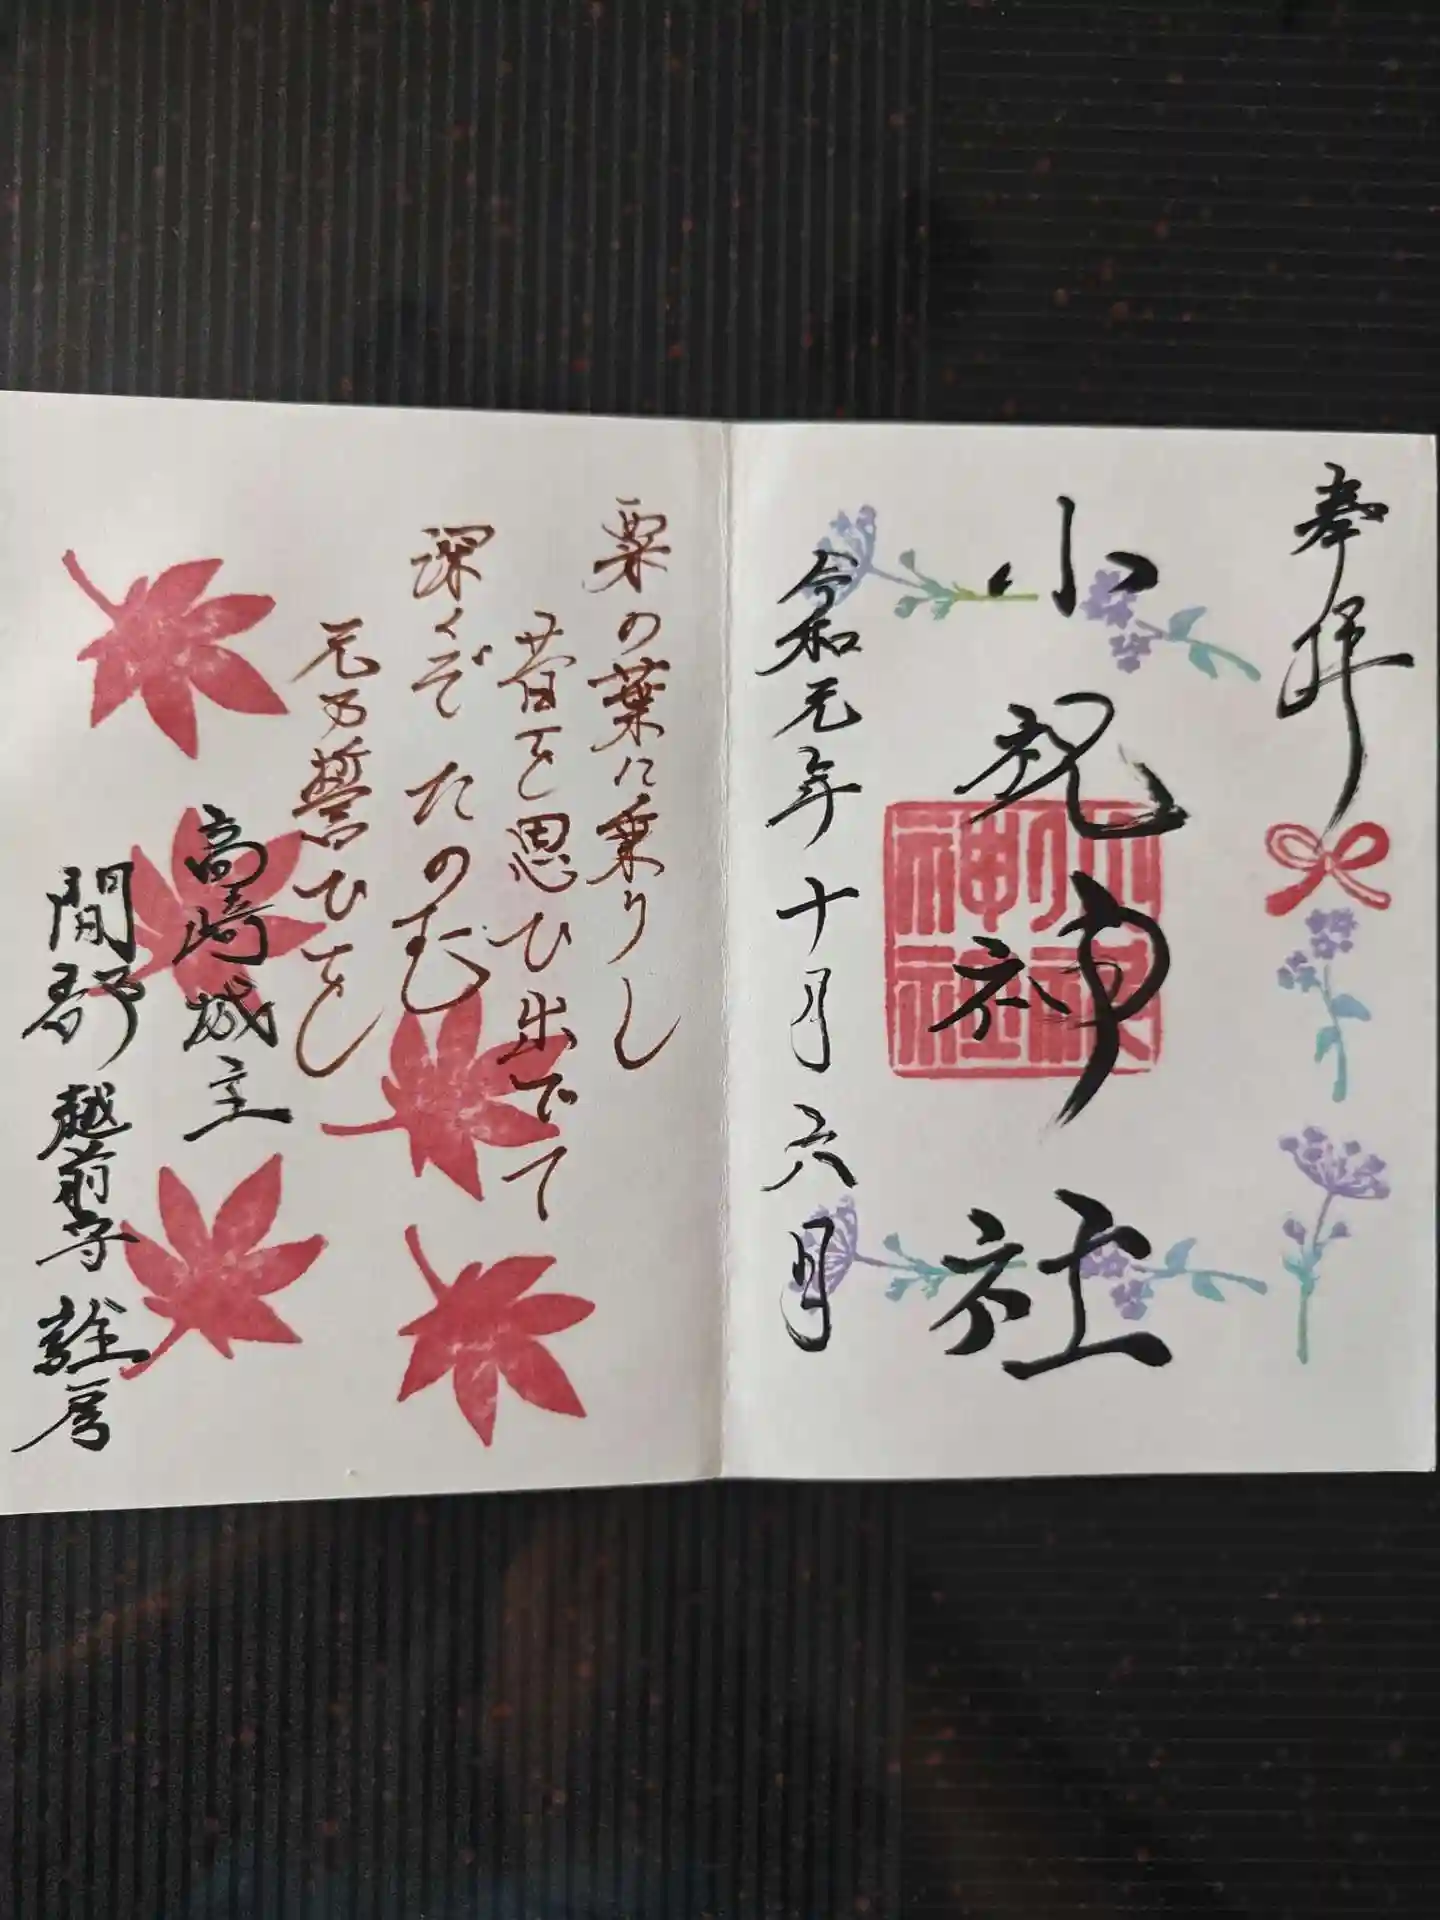 奉拝
小祝神社
小祝
神社
令和元年十月六月
粟の葉に乗りし
昔を思ひ出でて
深くぞたのむ
元乃誓ひをし
高崎城主
間部越前守詮房